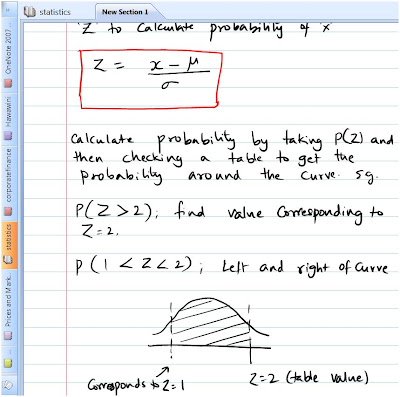 statistics
New Section 1
'Z' to Calculate probability of 'x'
Z = x - μ / σ
Calculate probability by taking P(Z) and
then checking a table to get the
probability around the curve. eg.
P(Z > 2); find value corresponding to
Z = 2.
P(1 < Z < 2); Left and right of curve
Corresponds to Z=1
Z=2 (table value)
OneNote 2007 ...
Hawawini
corporatefinance
statistics
Prices and Mark...
...